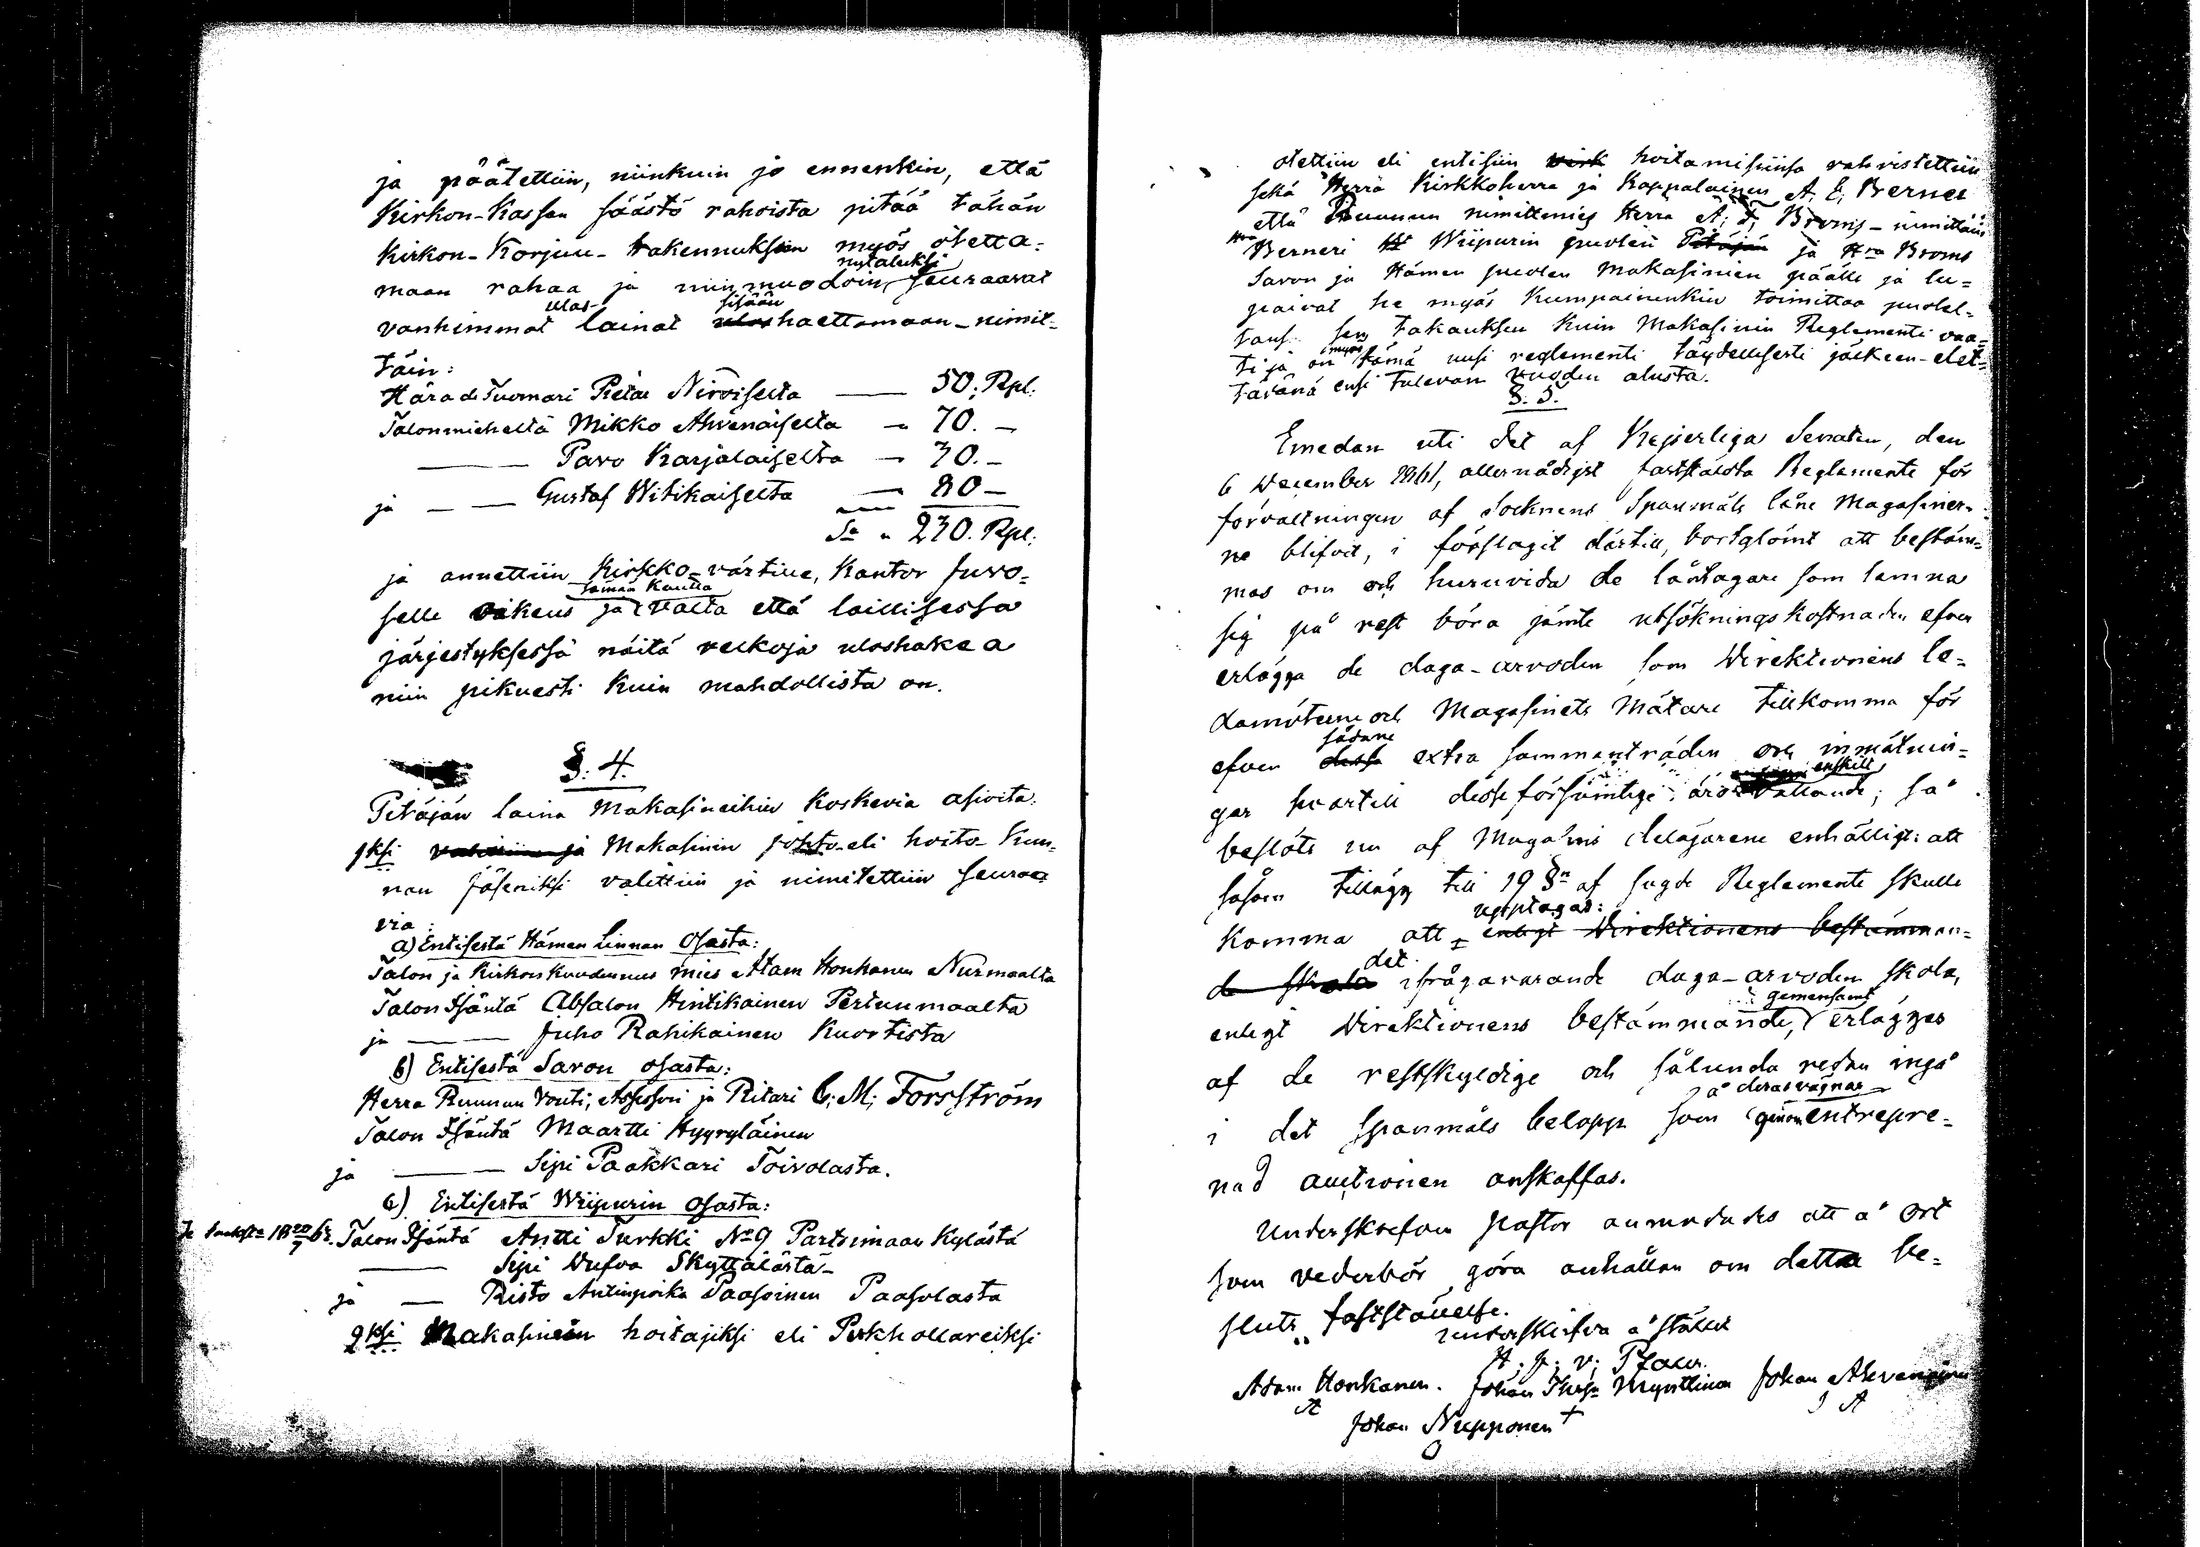 ja päätettiin, niinkuin jo ennenkin, että
Kirkon-Kassan säästö rahoista pitää tähän
Kirkon-Korjuu-rakennuksen myös otetta-
maan rahaa ja niin muodoin nytaluksi seuraavat
vanhimmat ulos lainat sisään haettamaan - nimit-
täin:
Härads Tuomari Pietar Nirviseltä — 50; Rpl.
Talonmieheltä Mikko Ahvenaiselta — 70. —
— Pavo Karjalaiselta — 30. —
ja — Gustaf Witikaiselta — 80 —
Sa „ 230. Rpl.
ja annettiin Kirkko-värtille, Kantor Juvo-
selle oikeus ja tämän kautta valta että laillisessa
järjestyksessä näitä velkoja uloshakea
niin pikuesti kuin mahdollista on.
§. 4.
Pitäjän laina Makasineihin Koskevia asioita.
1ksi Makasinin johto-eli hoito-Kun-
nan Jäseniksi valittiin ja nimitettiin seuraa-
via:
a) Entisestä Hämen Linnan Osasta:
Talon ja Kirkonkuudennus mies Adam Honkanen Nurmaalta
Talon Isäntä Absalon Hintikainen Pertunmaalta
ja — Juho Rahikainen Kuortista
b) Entisestä Savon osasta:
Herra Ruunun Vouti, Assessori ja Ritari C. M. Forsström
Talon Isäntä Maartti Hyyryläinen
ja — Sipi Paakkari Toivolasta.
c) Entisestä Wiipurin Osasta:
Talon Isäntä Antti Turkki No 9 Partsimaan Kylästä
— Sipi Dufva Skyttälästä -
ja — Risto Antinpoika Paasoinen Paasolasta
2ksi Makasinein hoitajiksi eli Perkhollareiksi
otettiin eli entisiin hoitamisiinsa vahvistettiin
sekä Herra Kirkkoherra ja Kappalainen A. E. Berner
että Ruunun nimittenies Herra A. F. Broms - nimittäin
Hra Berneri Wiipurin puolen ja Hra Broms
Savon ja Hämen puolen Makasinien päälle ja lu-
paivat he myös kumpainenkin toimittaa puolel-
tans sen takauksen kuin Makasinin Reglementi vaa-
ti ja on myös tämä uusi reglementi täydellisesti jälkeen-elet-
tävänä ensi tulevan vuoden alusta.
§. 5.
Emedan uti det af Kejserliga Senaten, den
6 December 1861, allernådigst fastställda Reglemente för
förvaltningen af Socknens Spanmåls låne Magasiner-
ne blifvit, i förslagit dertill, bortglömt att bestäm-
mas om och huruvida de låntagare som lemna
sig på rest böra jämte utsökningskostnaden efven
erlägga de daga-arvoden som Direktionens le-
damöterne och Magasinets Mätare tillkomma för
efven sådane extra sammanträden och inmätnin-
gar hvartill desse försumlige äro enskilt vållande; så
beslöts nu af Magasins delägarene enhälligt: att
såsom tillägg till 19 §n af sagde Reglemente skulle
komma att upptagas:
det ifrågavarande daga-arvoden skola,
enligt Direktionens bestämmande, gemensamt erlägges
af de restskyldige och sålunda redan ingå
i det spanmåls belopp som å deras vägnar genom entrepre-
nad auctionen anskaffas.
Underskrefven Pastor anmodades att å ort
som vederbör göra anhållan om detta be-
sluts fastställelse.
underskrifva å stället
Adam Honkanen. Johan Myyttinen Johan Ahvenainen
Johan Nupponen